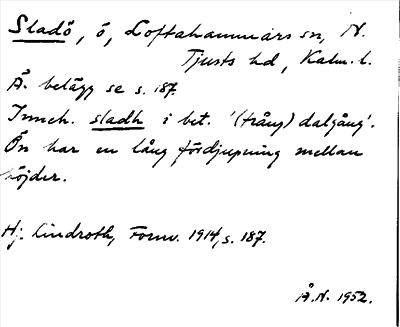 Sladö, ö, Loftahammars sn, N.
Tjusts hd, Kalm. l.
Ä. belägg se s. 187.
Inneh. sladh i bet. '(trång) dalgång'.
Ön har en lång fördjupning mellan
höjder.
Hj. Lindroth, Fornv. 1914, s. 187.
Å.N. 1952.